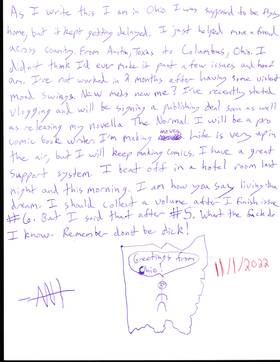 As I write this I am in Ohio. I was supposed to be flying
home, but it kept getting delayed. I just helped move a friend
across country. From Texas to Columbus, Ohio. I
didn't think I'd ever make it past a few issues and here I
am. I've not worked in 2 months after having some violent
mood swings. New meds new me? I've recently started
vlogging and will be signing a publishing deal soon as well
as releasing my novella The Normal. I will be a pro
comic book writer. I'm making moves. Life is very up in
the air, but I will keep making comics. I have a great
support system. I beat off in a hotel room last
night and this morning. I am how you say living the
dream. I should collect a volume after I finish issue
#6. But I said that after #5. What the fuck do
I know. Remember dont be dick!
Greetings from
Ohio!
11/1/2022